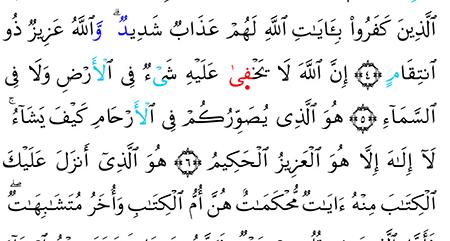 ٱلَّذِينَ كَفَرُوا۟ بِـَٔايَـٰتِ ٱللَّهِ لَهُمْ عَذَابٌ شَدِيدٌ ۗ وَٱللَّهُ عَزِيزٌ ذُو
ٱنتِقَامٍ ﴿٤﴾ إِنَّ ٱللَّهَ لَا يَخْفَىٰ عَلَيْهِ شَىْءٌ فِى ٱلْأَرْضِ وَلَا فِى
ٱلسَّمَآءِ ﴿٥﴾ هُوَ ٱلَّذِى يُصَوِّرُكُمْ فِى ٱلْأَرْحَامِ كَيْفَ يَشَآءُ ۚ
لَآ إِلَـٰهَ إِلَّا هُوَ ٱلْعَزِيزُ ٱلْحَكِيمُ ﴿٦﴾ هُوَ ٱلَّذِىٓ أَنزَلَ عَلَيْكَ
ٱلْكِتَـٰبَ مِنْهُ ءَايَـٰتٌ مُّحْكَمَـٰتٌ هُنَّ أُمُّ ٱلْكِتَـٰبِ وَأُخَرُ مُتَشَـٰبِهَـٰتٌ ۖ